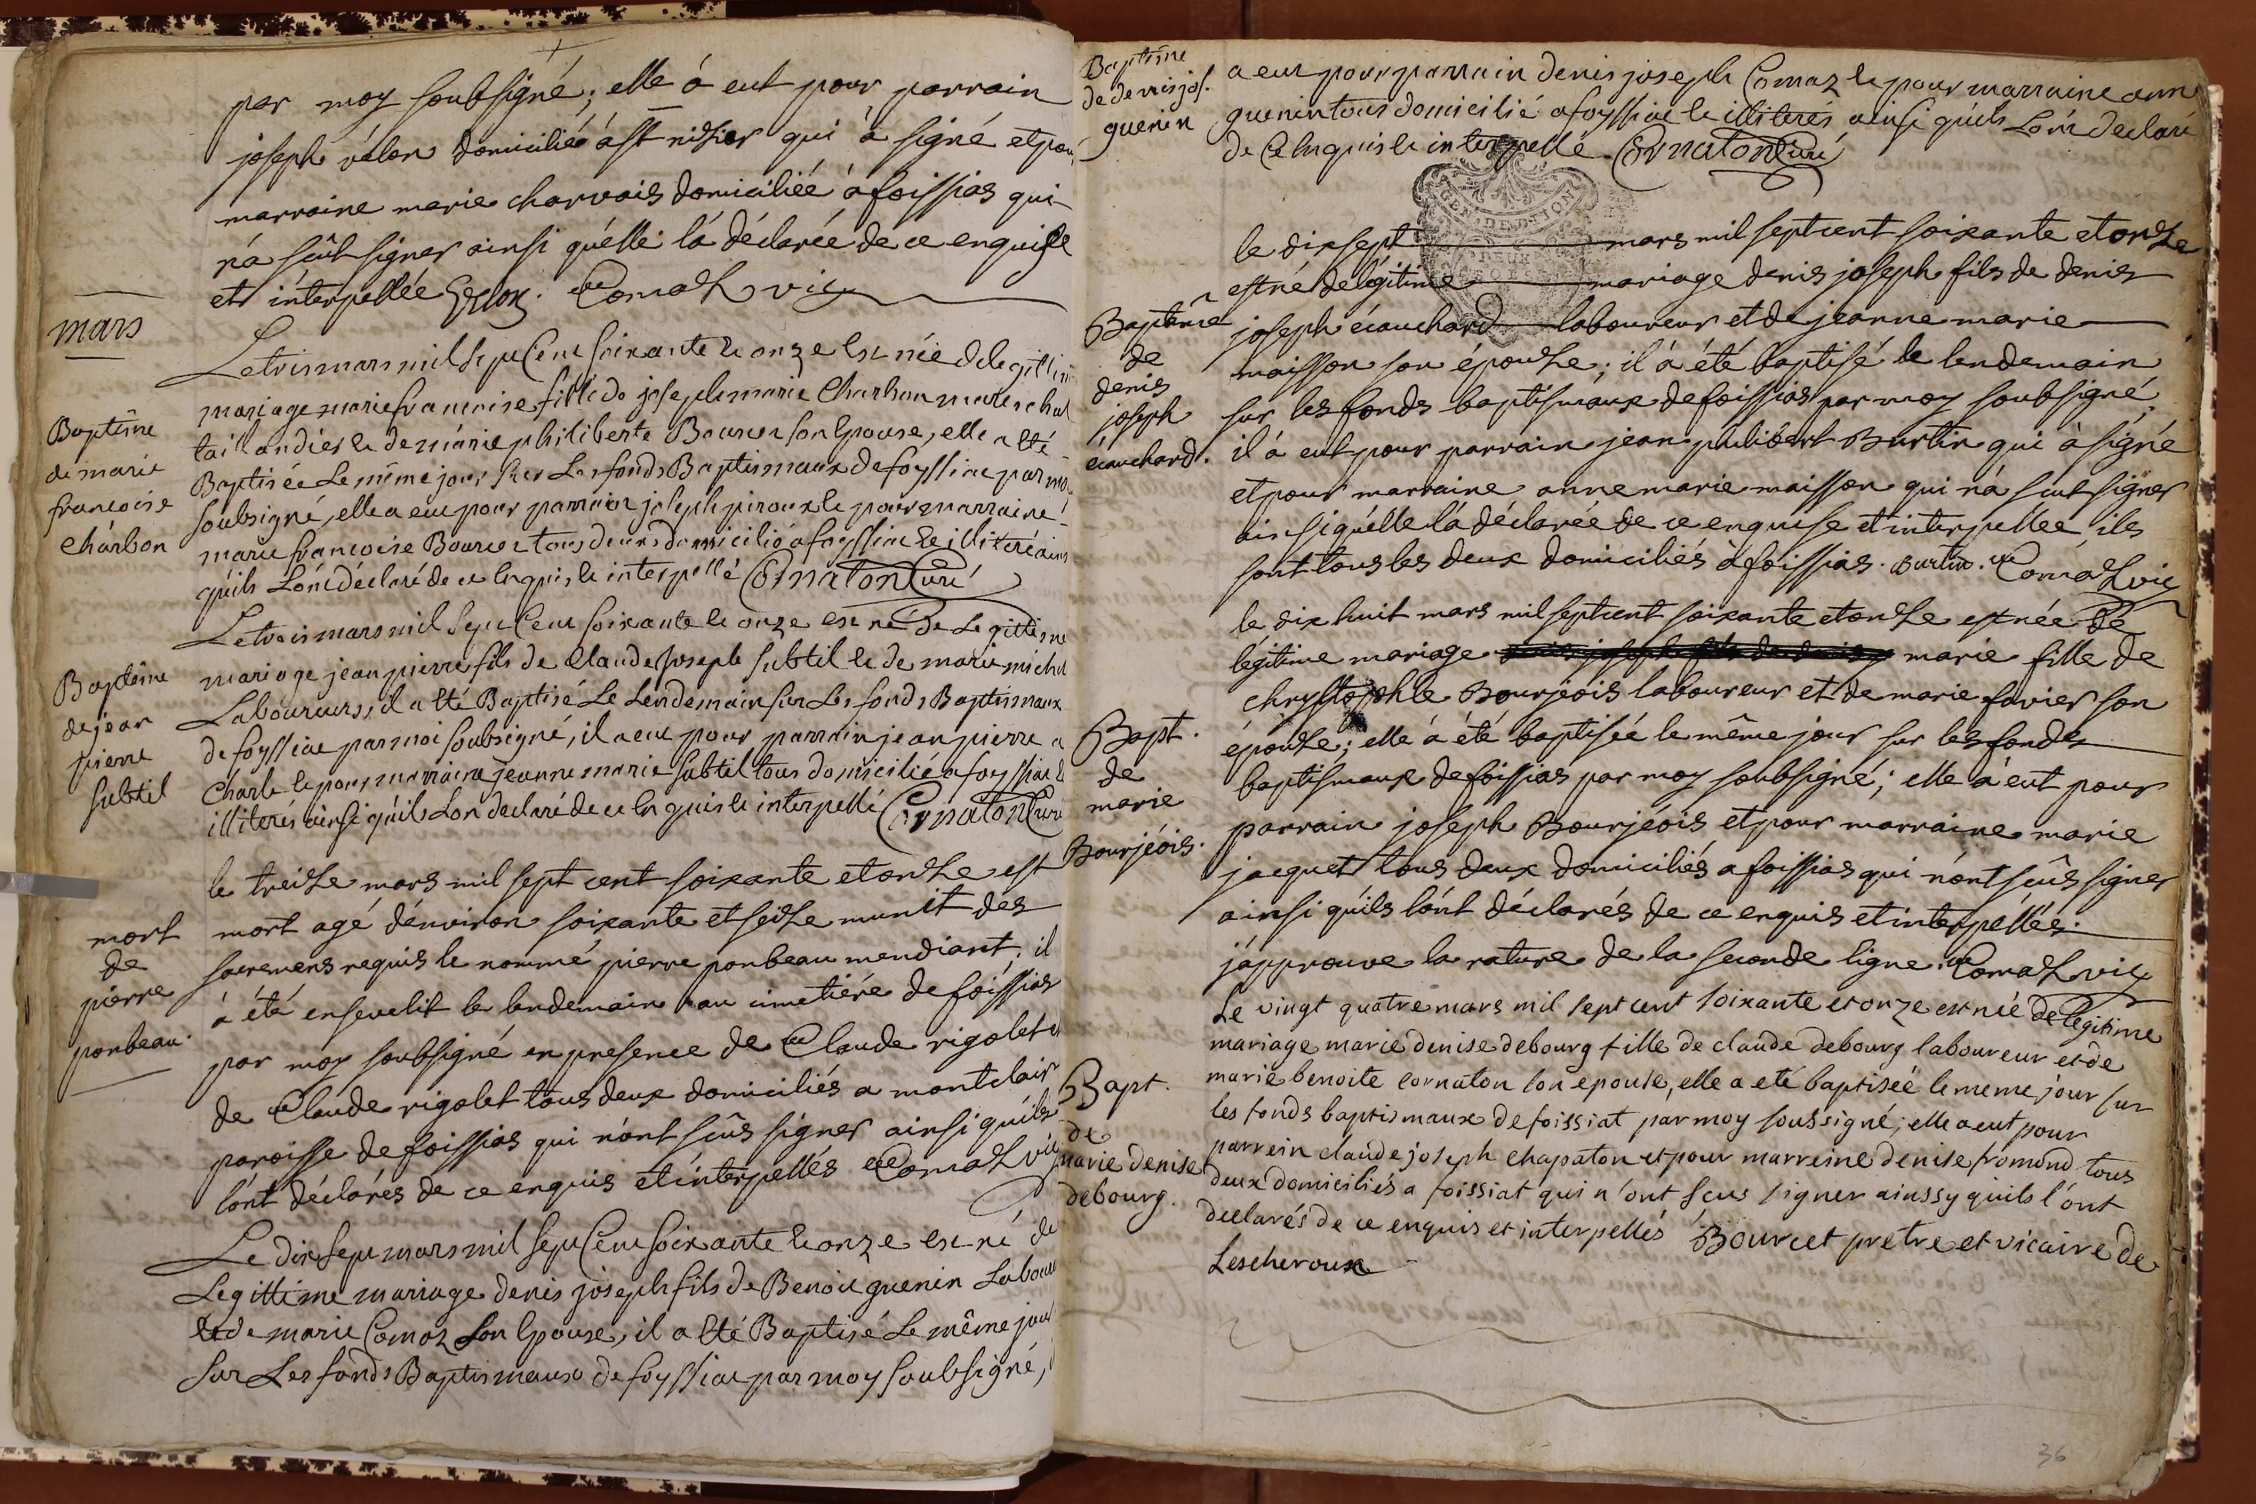 par moy soubsigné; elle á eut pour parrain
joseph domicilié á st nizier qui á signé et pour
marraine marie charvais domiciliée á foissias qui
ná scût signer ainsi quélle lá déclarée de ce enquise
et interpellée. Comaz vic
mars
Baptême
de marie
françoise
Charbon
Le trois mars mil sept Cent soixante et onze est née de legitime
mariage marie francoise fille de joseph marie Charbon mareschal
taillandier et de marie philiberte Bourcet son Epouse, elle a eté
Baptisée Le même jour sur Les fonds Baptismaux de foyssiat par moy
soubsigné, elle a eut pour parrain joseph piroux et pour marraine
marie francoise Bourcet tous deux domicilié a foyssiat et illiteré ainsi
qu'ils L'ont déclaré de ce Enquis et interpellé Cornaton Curé
Baptême
de jean
pierre
subtil
Le trois mars mil sept Cent soixante et onze est né de Legittime
mariage jean pierre fils de Claude joseph subtil et de marie michel
Laboureurs, il a eté Baptisé Le Lendemain sur Les fonds Baptismaux
de foyssiat par moi soubsigné, il a eut pour parrain jean pierre
Charle et pour marraine jeanne marie subtil tous domicilié a foyssiat et
illiterés ainsi qu'ils L'on declaré de ce Enquis et interpellé Cornaton Curé
mort
de
pierre
ponbeau.
le treize mars mil sept cent soixante et onze est
mort agé d'énviron soixante et seize munit des
sacremens requis le nommé pierre ponbeau mendiant; il
á été ensevelit le lendemain au cimetiére de foissias
par moy soubsigné en presence de Claude rigolet et
de Claude rigolet tous deux domiciliés a montclair
paroisse de foissias qui n'ont scûs signer ainsi qu'ils
l'ónt déclarés de ce enquis et interpellés Comaz vic
Le dix sept mars mil sept Cent soixante et onze est né de
Legittime mariage denis joseph fils de Benoit guenin Laboureur
et de marie Comaz son Epouse, il a eté Baptisé Le même jour
sur Les fonds Baptismaux de foyssiat par moy soubsigné,
Baptême
de denis jos.
guenin
a eut pour parrain denis joseph Comaz et pour marraine anne
guenin tous domicilié a foyssiat et illiterés ainsi qu'ils L'on declaré
de Ce Enquis et interpellé Cornaton Curé
Baptême
de
denis
joseph
écauchard.
le dix sept mars mil sept cent soixante et onze
est né de légitime mariage denis joseph fils de denis
joseph écauchard laboureur et de jeanne marie
maisson son épouze; il á été baptisé le lendemain
sur les fonds baptismaux de foissias par moy soubsigné
il á eut pour parrain jean philibert Burtin qui á signé
et pour marraine anne marie maisson qui ná scut signer
ainsi quélle lá déclarée de ce enquise et interpellee ils
sont tous les deux domiciliés á foissias. Burtin. Comaz vic
Bapt.
de
marie
Bourjéois.
le dix huit mars mil sept cent soixante et onze est née de
légitime mariage marie fille de
chrystophle Bourjéois laboureur et de marie favier son
épouze; elle á été baptisée le même jour sur les fonds
baptismaux de foissias par moy soubsigné; elle á eut pour
parrain joseph Bourjéois et pour marraine marie
jacquet tous deux domiciliés a foissias qui n'ont scûs signer
ainsi qu'ils l'ónt déclarés de ce enquis et interpéllés.
j'approuve la rature de la seconde ligne. Comaz vic
Bapt.
de
marie denise
debourg.
Le vingt quatre mars mil sept cent soixante et onze est née de legitime
mariage marie denise debourg fille de claude debourg laboureur et de
marie benoite cornaton son epouse, elle a eté baptisée le meme jour sur
les fonds baptismaux de foissiat par moy soussigné; elle a eut pour
parrein claude joseph chapaton et pour marreine denise fromond tous
deux domiciliés a foissiat qui n'ont scus signer ainssy qu'ils l'ont
declarés de ce enquis et interpellés Bourcet prêtre et vicaire de
Lescheroux
36